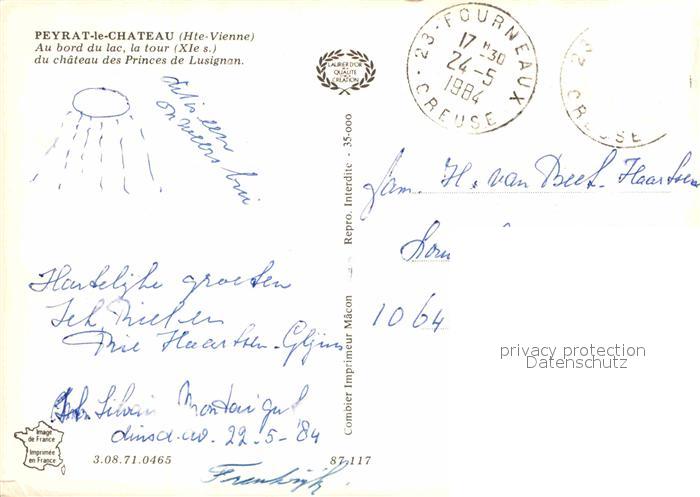 PEYRAT-le-CHATEAU (Hte-Vienne)
Au bord du lac, la tour (XIe s.)
du château des Princes de Lusignan.
dit is een
onweers bui
LAURIER D'OR
DE LA
QUALITÉ
CRÉATION
23 - FOURNEAUX
17 H 30
24-5
1984
CREUSE
23
CREUSE
Fam. H. van Beet-Haartsen
1064
Hartelijke groeten
Mie Haartsen-Gijins
St. Silvain Montaigut
dinsd. av. 22-5-'84
Frankrijk.
Image
de France
Imprimée
en France
3.08.71.0465
87-117
Combier Imprimeur Mâcon Repro. Interdite - 35-000
privacy protection
Datenschutz